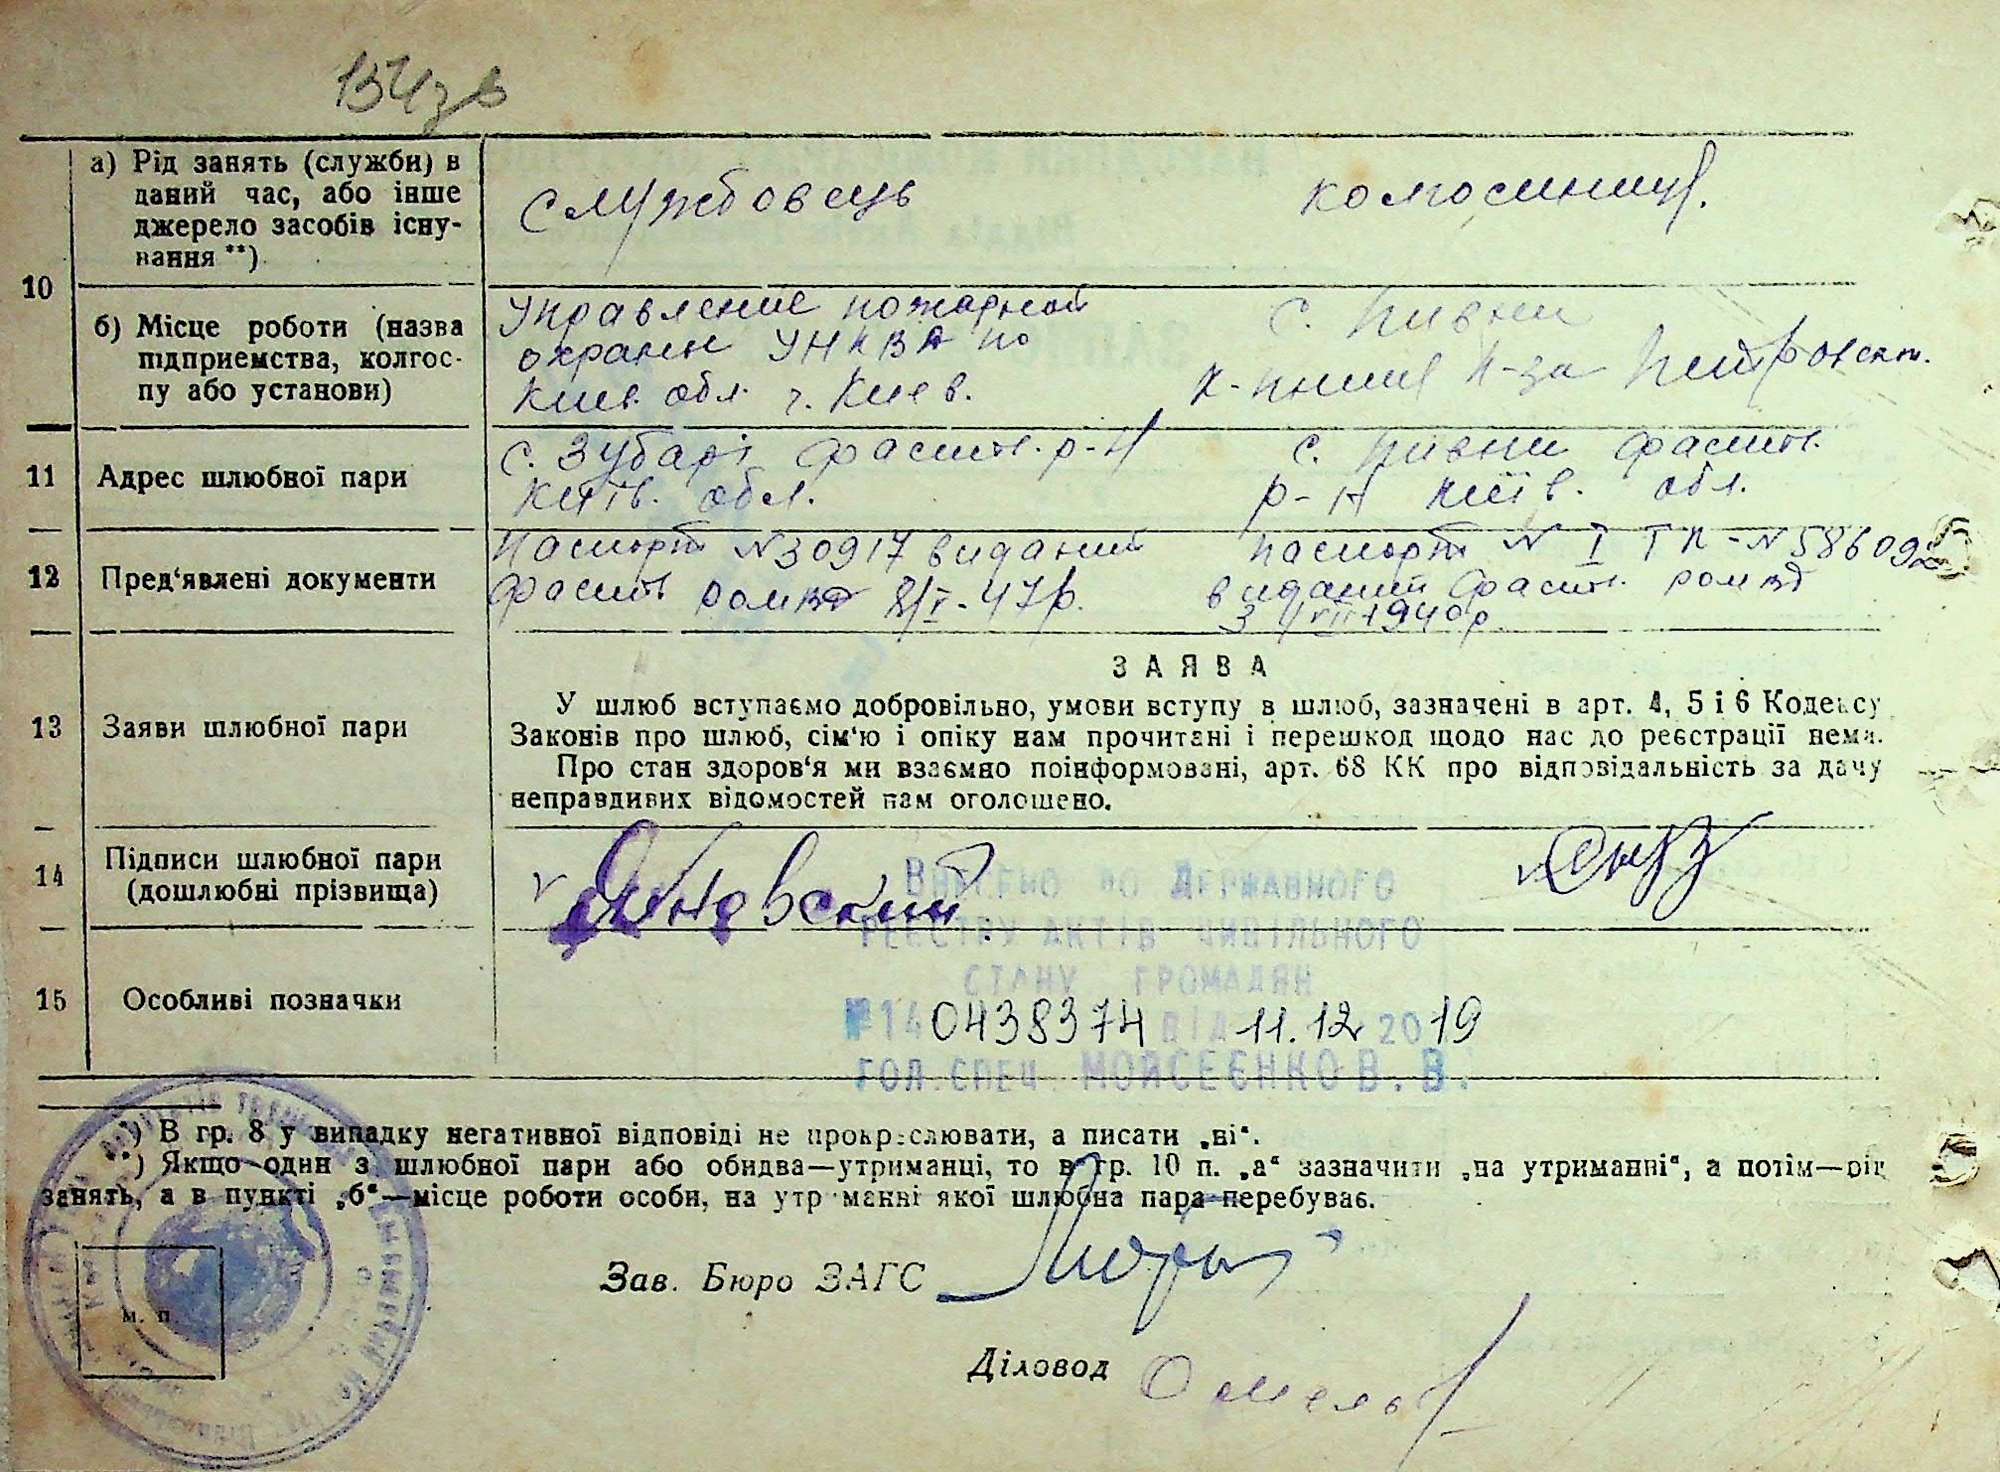 154зв
10
а) Рід занять (служби) в
даний час, або інше
джерело засобів існу-
вання **)
службовець
колгоспниця.
б) Місце роботи (назва
підприемства, колгос-
пу або установи)
Управление пожарной
охраны УНКВД по
Киев. обл. г. Киев.
с. Пивни
к-пниця к-за Петровск.
11
Адрес шлюбної пари
с. Зубарі Фастів. р-н
Київ. обл.
с. Пивни Фастів.
р-н Київ. обл.
12
Пред‘явлені документи
Паспорт №30917 виданий
Фастів РОМВД 8/I-47р.
паспорт № I ТК-№586092
виданий Фастів. РОМВД
1940р.
13
Заяви шлюбної пари
ЗАЯВА
У шлюб вступаємо добровільно, умови вступу в шлюб, зазначені в арт. 4, 5 і 6 Кодексу
Законів про шлюб, сім‘ю і опіку нам прочитані і перешкод щодо нас до реєстрації нема.
Про стан здоров‘я ми взаємно поінформовані, арт. 68 КК про відповідальність за дачу
неправдивих відомостей нам оголошено.
14
Підписи шлюбної пари
(дошлюбні прізвища)
Яновский
15
Особливі позначки
Внесено до Державного
реєстру актів цивільного
стану громадян
№140438374 від 11.12 2019
гол. спец. Мойсеєнко В. В.
*) В гр. 8 у випадку негативної відповіді не прокреслювати, а писати „ні“.
**) Якщо один з шлюбної пари або обидва—утриманці, то в гр. 10 п. „а“ зазначити „на утриманні“, а потім—рід
занять, а в пункті „б“—місце роботи особи, на утриманні якої шлюбна пара перебуває.
Зав. Бюро ЗАГС
м. п.
Діловод